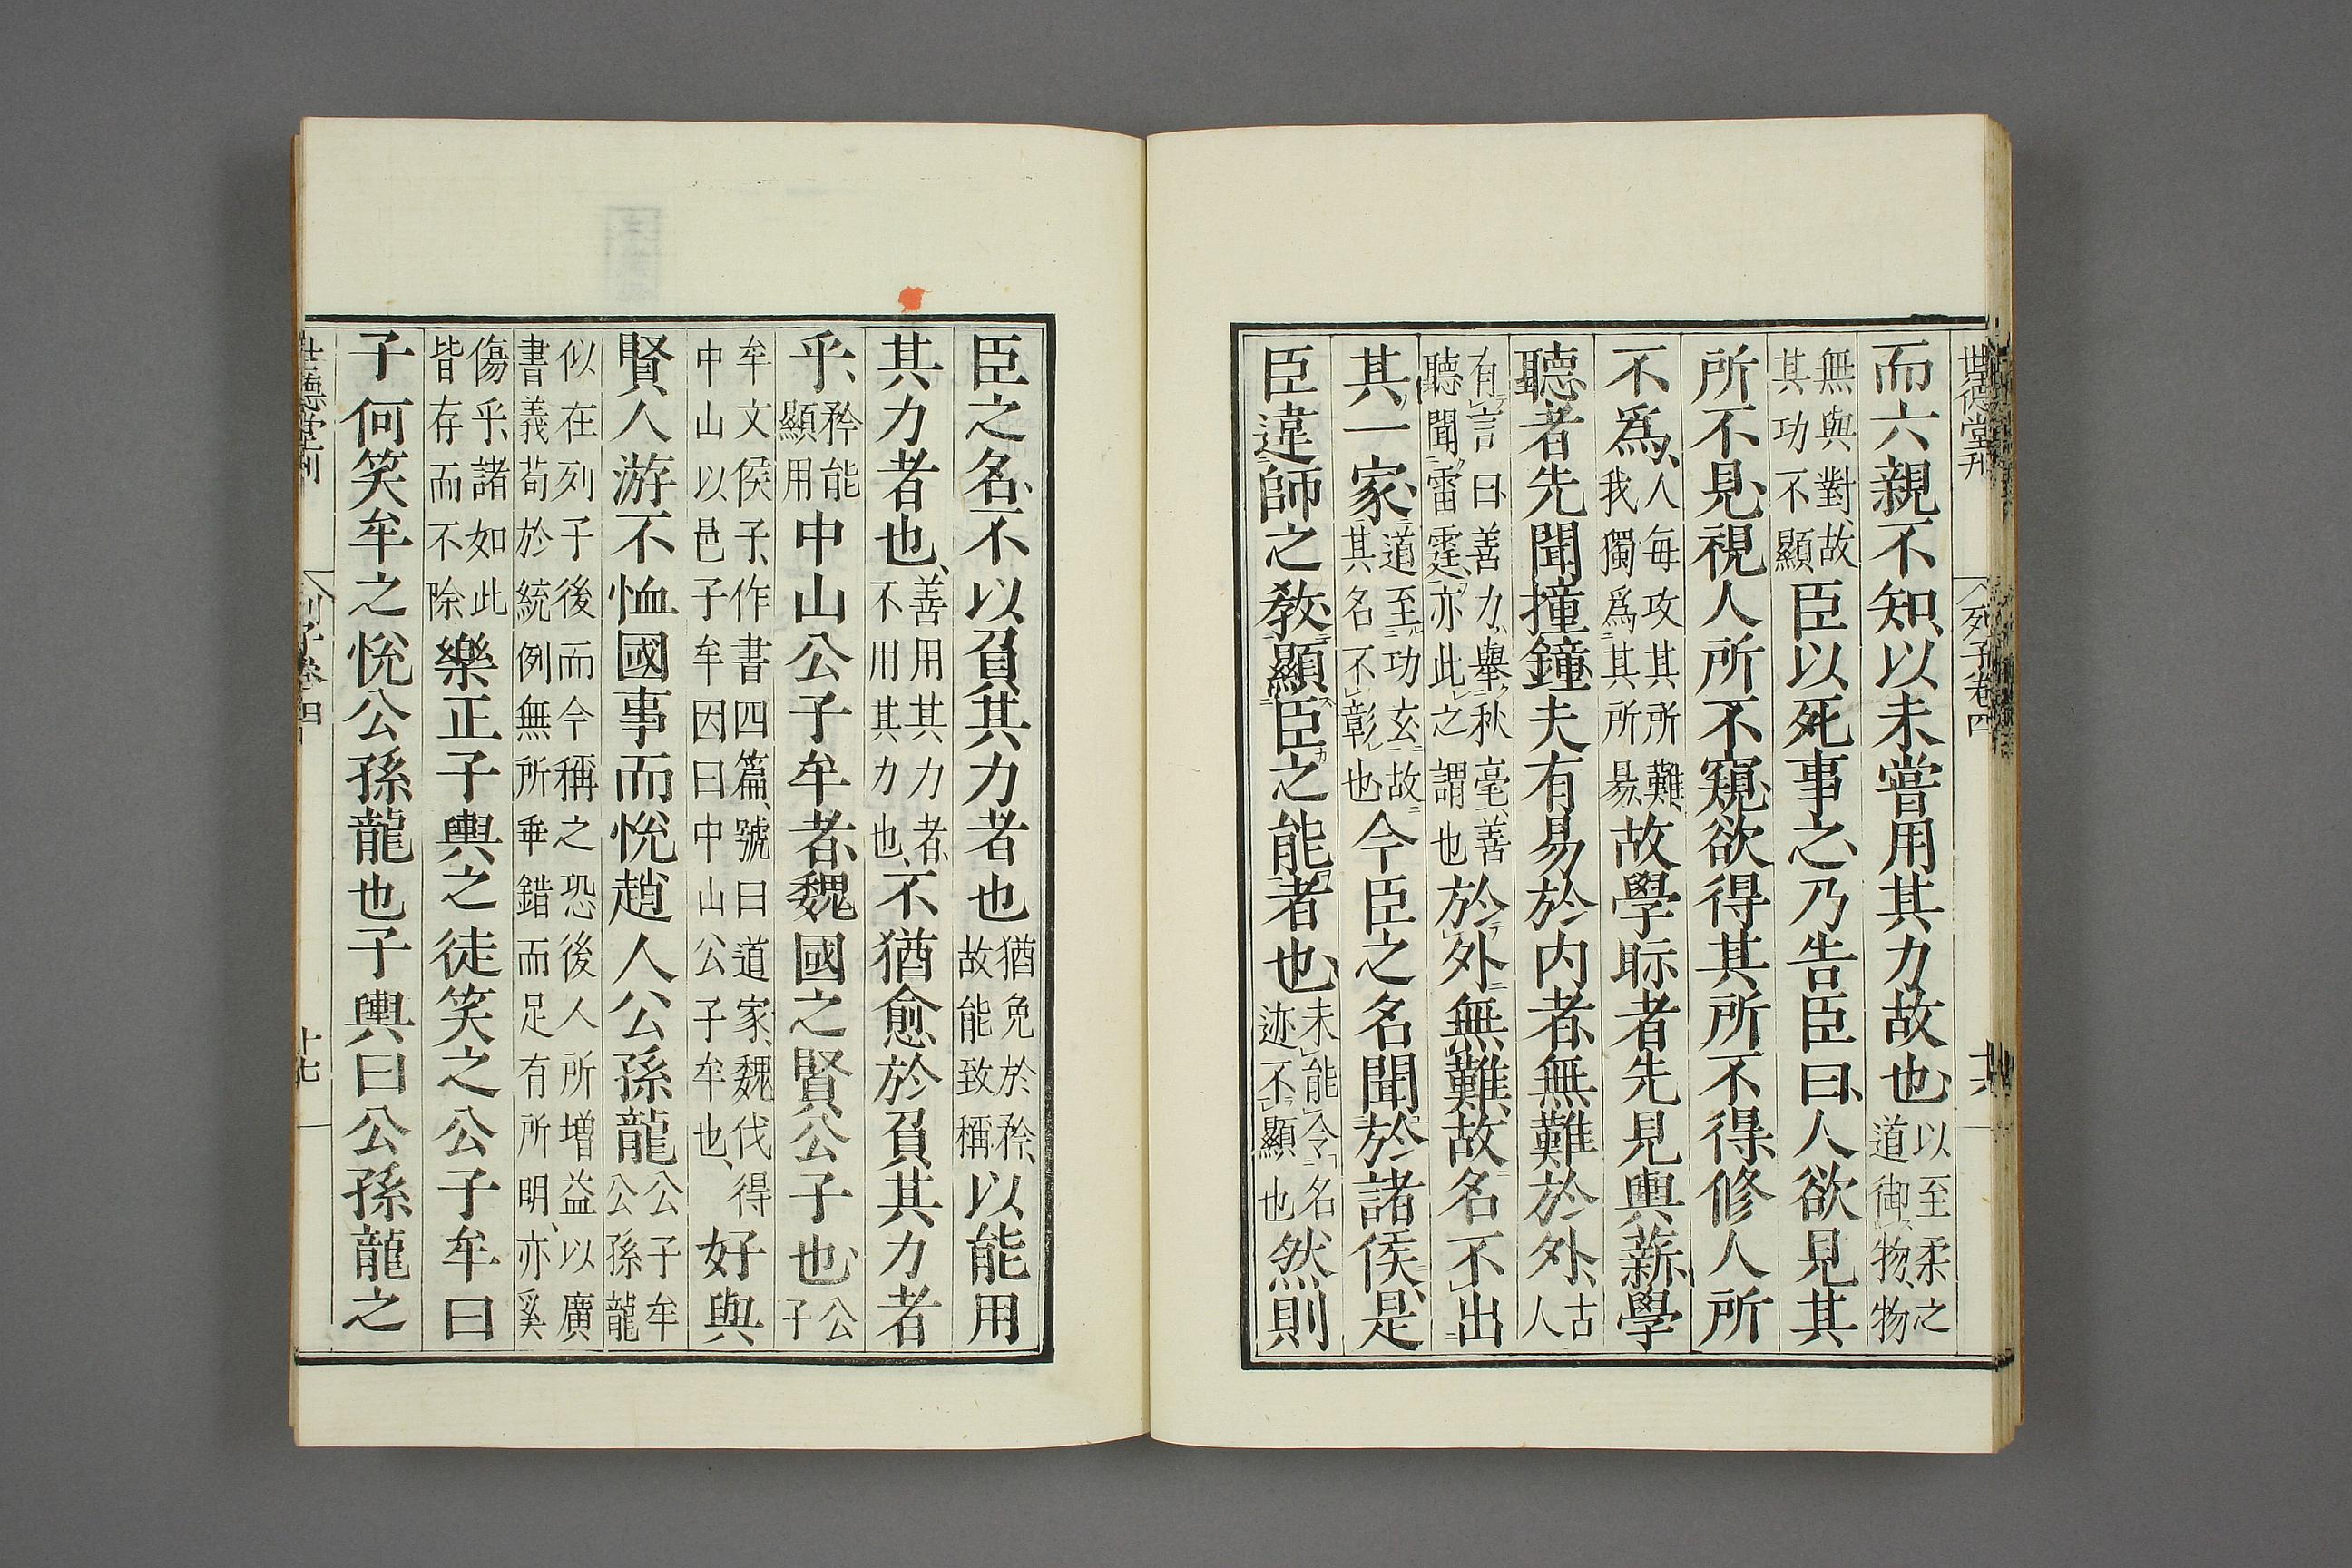 世德堂刊 列子卷四 十六
而六親不知、以未嘗用其力故也、以至柔之道御物、物
無與對、故其功不顯、臣以死事之、乃告臣曰、人欲見其
所不見、視人所不窺、欲得其所不得、修人所
不爲、人每攻其所難、我獨爲其所易、故學眎者先見輿薪、學
聽者先聞撞鐘、夫有易於内者、無難於外、古人
有言曰、善力、舉秋毫、善聽聞雷霆、亦此之謂也於外無難、故名不出
其一家、道至功玄故其名不彰也今臣之名聞於諸侯、是
臣違師之敎、顯臣之能者也、未能令名迹不顯也然則
臣之名、不以負其力者也猶免於矜、故能致稱以能用
其力者也、善用其力者、不用其力也、不猶愈於負其力者
乎、矜能顯用中山公子牟者、魏國之賢公子也、公子
牟文侯子、作書四篇、號曰道家、魏伐得中山以邑子牟因曰中山公子牟也、好與
賢人游不恤國事而悅趙人公孫龍公子牟公孫龍
似在列子後而今稱之恐後人所增益以廣書義苟於統例無所乖錯而足有所明、亦奚
傷乎、諸如此皆存而不除樂正子輿之徒笑之公子牟曰
子何笑牟之悅公孫龍也子輿曰公孫龍之
世德堂刊 列子卷四 十七